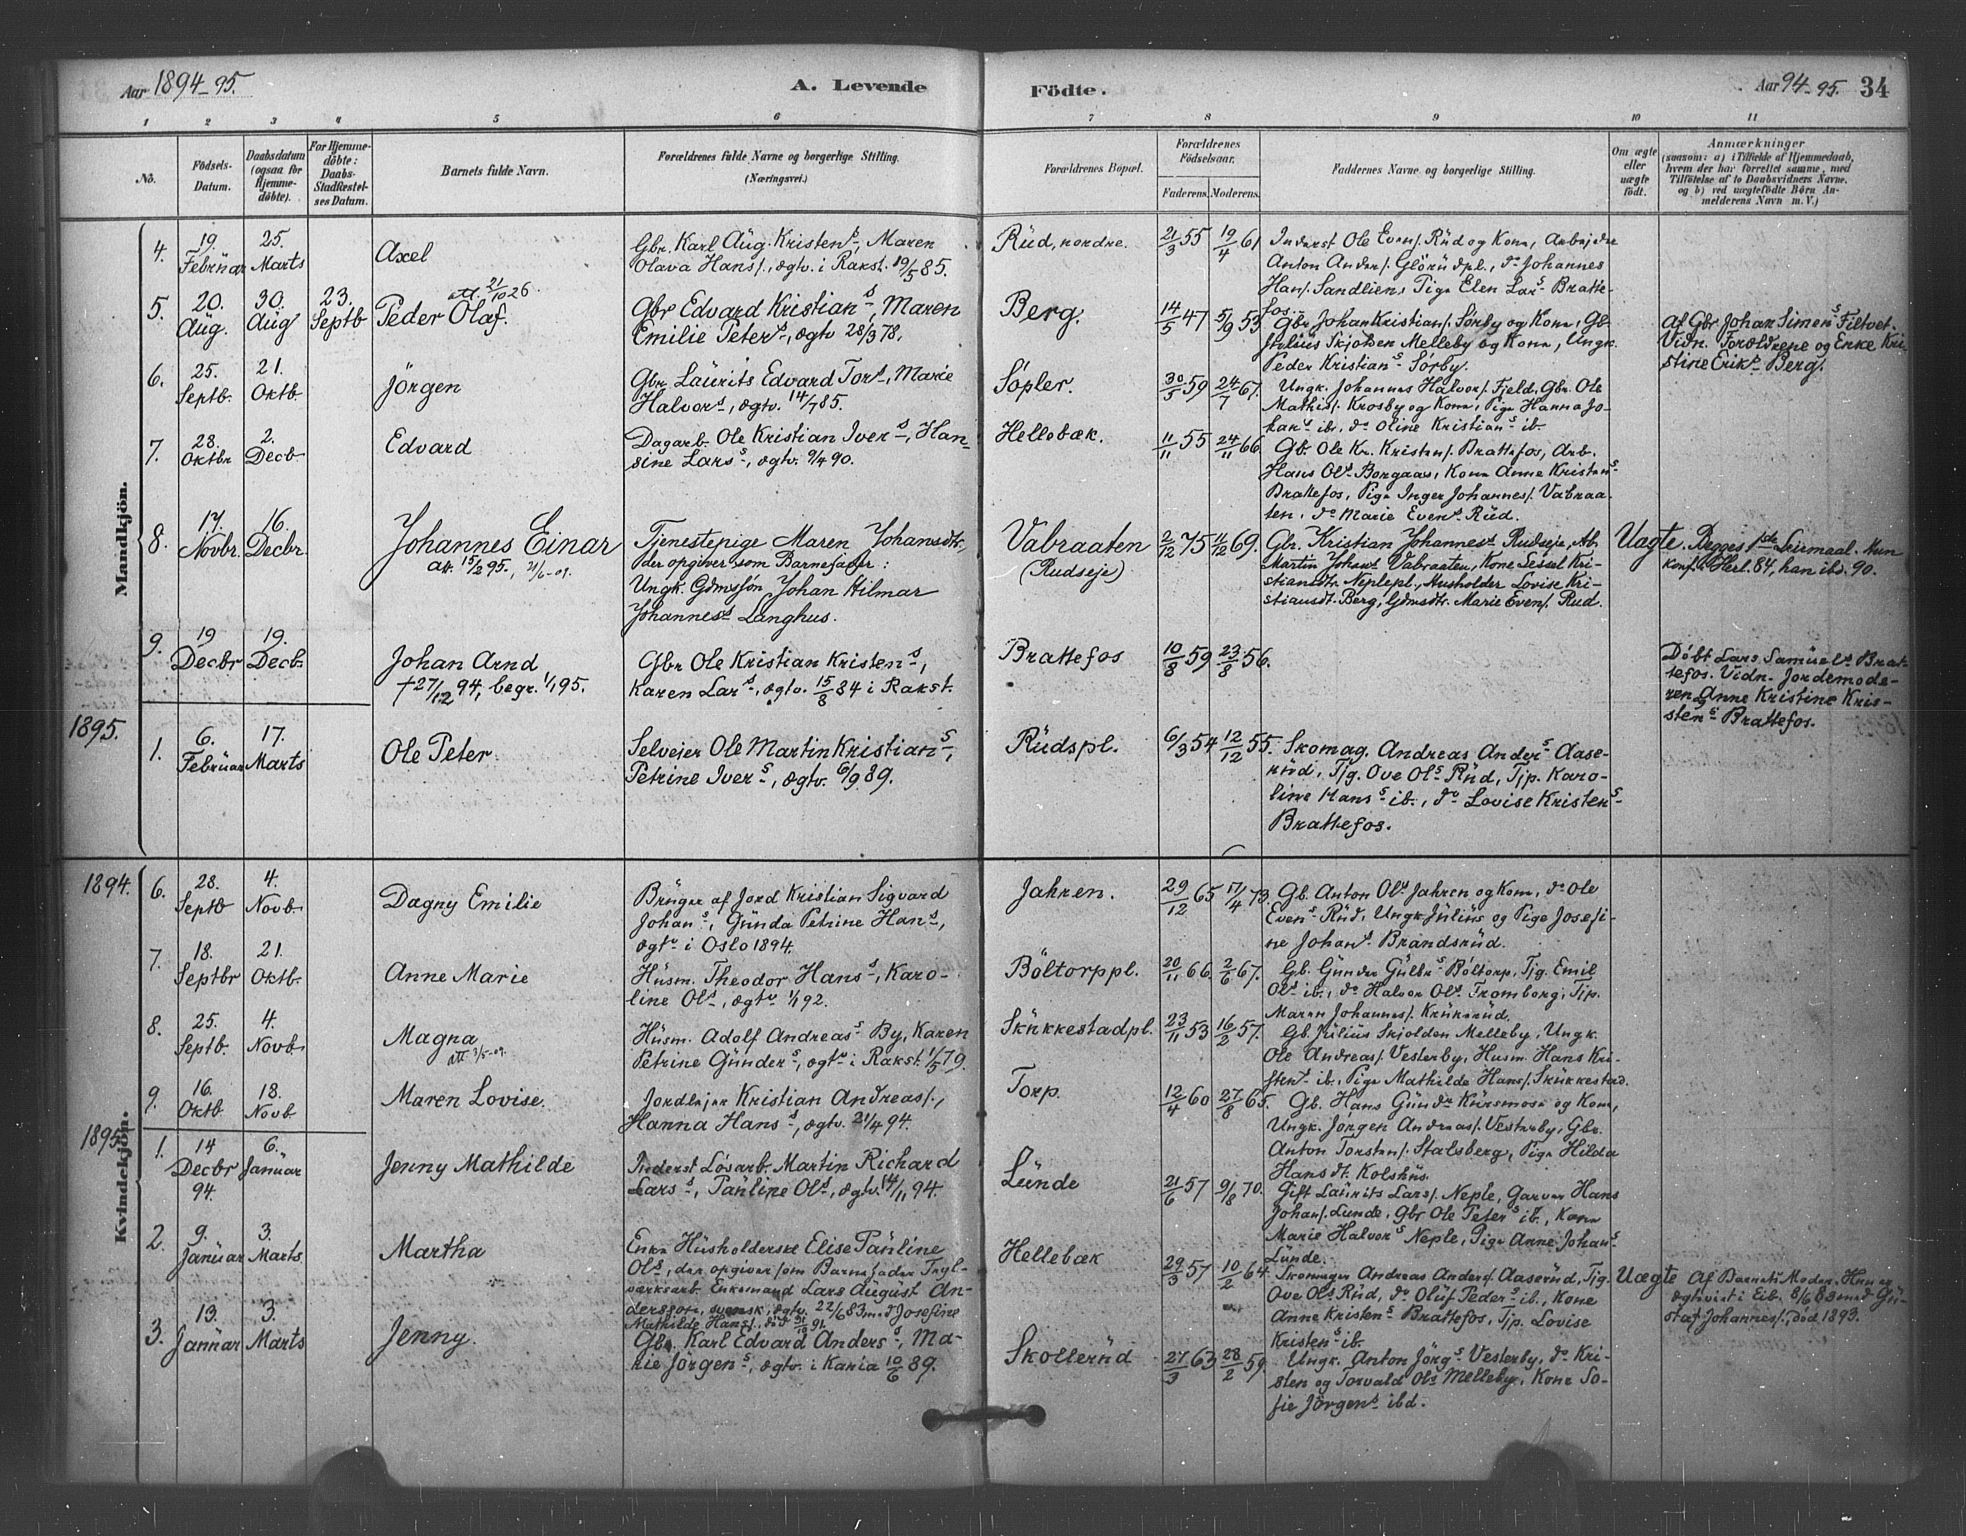 Aar 1894-95.
A. Levende
Födte.
Aar 94-95. 34
1 2 3 4 5 6 7 8 9 10 11
No.
Födsels-
Datum.
Daabsdatum
(ogsaa for
Hjemme-
döbte).
For Hjemme-
döbte:
Daabs-
Stadfæstel-
ses Datum.
Barnets fulde Navn.
Forældrenes fulde Navne og borgerlige Stilling.
(Næringsvei.)
Forældrenes Bopæl.
Forældrenes
Födselsaar.
Faderens. Moderens.
Faddernes Navne og borgerlige Stilling.
Om ægte
eller
uægte
födt.
Anmærkninger
(saasom: a) i Tilfælde af Hjemmedaab,
hvem der har forrettet samme, med
Tilföielse af to Daabsvidners Navne,
og b) ved uægtefödte Börn An-
melderens Navn m. V.)
Mandkjön.
4. 19. Februar
25. Marts
Axel
Gbr. Karl Aug. Kristens., Maren
Olava Hans/., ægtv. i Rakst. 19/5 85.
Rüd, nordre.
21/3 55 19/4 61
Inderst Ole Even/. Rüd og Kone, Arbejder
Anton Anders/. Glörüdpl., do Johannes
Hans/. Sandliens Pige Elen Lars. Bratte-
fos.
5. 20. Aug.
30. Aug
23. Septb
att. 21/10 26.
Peder Olaf.
Gbr Edvard Kristians, Maren
Emilie Peters., ægtv 28/3 78.
Berg.
14/5 47 5/9 53
Gbr. Johan Kristian/. Sørby og Kone, Gb
Julius Skjolden Melleby og Kone, Ungk.
Peder Kristians Sørby.
Af Gbr Johan Simens Filtvet.
Vidn. Forældrene og Enke Kri-
stine Eriks. Berg.
6. 25. Septb.
21. Oktb.
Jörgen
Gbr. Laurits Edvard Tors., Marie
Halvors., ægtv. 14/7 85.
Søpler.
30/5 59 24/7 67.
Ungk. Johannes Halvor/. Fjeld, Gbr. Ole
Mathis/. Krosby og Kone, Pige Hanna Jo-
hans. ib., do Oline Kristians ib.
7. 28. Oktbr
2. Decb.
Edvard
Dagarb. Ole Kristian Ivers., Han-
sine Lars., ægtv. 9/4 90.
Hellebæk.
11/11 55 24/11 66
Gb. Ole Kr. Kristen/. Brattefos, Arb.
Hans Ols. Borgaas, Kone Anne Kristens.
Brattefos, Pige Inger Johannes/. Vabraa-
ten, do Marie Evens. Rüd.
8. 17. Novbr.
16. Decbr.
Johannes Einar
att. 15/2 95., 21/6-09.
Tjenestepige Maren Johansdtr.
der opgiver som Barnefader:
Ungk. Gdmssøn Johan Hilmar
Johannes. Langhus.
Vabraaten
(Rudseje)
2/12 75 11/12 69.
Gbr. Kristian Johannes. Rudseje, Ab.
Martin Johans. Vabraaten, Kone Sessel Kri-
stiansdtr. Neplepl., Husholder Lovise Kri-
stiansdt. Berg, Gdmsdtr. Marie Even/. Rud.
Uægte
Begges 1ste Leiermaal. Hun
konf. i Herl. 84, han ibd. 90.
9. 19 Decbr
19. Decb.
Johan Arnd
† 27/12 94, begr. 1/1 95.
Gbr Ole Kristian Kristens.,
Karen Lars., ægtv. 15/8 84 i Rakst.
Brattefos
10/8 59 23/8 56.
Döbt. Lars Samüels. Brat-
tefos. Vidn. Jordemode-
ren, Anne Kristine Kri-
stens. Brattefos.
1895.
1. 6. Februar
17. Marts
Ole Peter
Selvejer Ole Martin Kristians.,
Petrine Ivers., ægtv. 6/9 89.
Rüdspl.
6/3 54 12/12 55.
Skomag. Andreas Anders. Aase-
rüd, Tjg. Ove Ols. Rüd, Tjp. Karo-
line Hans. ib., do Lovise Kristens.
Brattefos.
Kvindekjön.
1894.
6. 28. Septb
4. Novb.
Dagny Emilie
Brüger af Jord Kristian Sigvard
Johans., Günda Petrine Hans.,
ægtv i Oslo 1894.
Jahren.
29/12 65 17/4 73
Gb. Anton Ols. Jahren og Kone, do Ole
Evens. Rüd, Ungk Jülius og Pige Josefi-
ne Johans. Brandsrüd.
7. 18. Septbr
21. Oktb.
Anne Marie
Hüsm. Theodor Hans., Karo-
line Ols., ægtv 1/1 92.
Böltorppl.
20/11 66. 2/6 67.
Gb. Günder Gülbrs. Böltorp, Tjg. Emil
Ols. ib., do Halvor Ols. Tromborg, Tjp.
Maren Johannes/. Krüksrüd.
8. 25. Septb.
4. Novb
Magna
att. 3/5-09.
Hüsm. Adolf Andreas. By, Karen
Petrine Günders., ægtv i Rakst. 1/5 79.
Skükkestadpl.
23/11 53 16/2 57.
Gb. Jülius Skjolden Melleby, Ungk.
Ole Andreas/. Vesterby, Husm. Hans Kri-
stens. ib., Pige Mathilde Hans/. Skükkestad.
9. 16. Oktb.
18. Novb
Maren Lovise.
Jordlejer Kristian Andreas/.,
Hanna Hans., ægtv. 21/4 94.
Torp.
12/4 60 27/8 65.
Gb. Hans Günds. Kürsmose og Kone,
Ungk. Jørgen Andreas/. Vesterby, Gbr.
Anton Torsten/. Stalsberg, Pige Hilda
Hansdt. Kolshüs.
1895
1. 14 Decbr 94.
6. Janüar
Jenny Mathilde
Inderst Løsarb. Martin Richard
Lars., Paüline Ols., ægtv. 14/11 94.
Lünde
21/6 57 9/8 70.
Gift Laürits Lars/. Neple, Garver Hans
Johan/. Lunde, Gbr Ole Peters ib., Kone
Marie Halvors. Neple, Pige Anne Johans.
Lünde.
2. 9. Janüar
3. Marts
Martha
Enke Hüsholderske Elise Paüline
Ols., der opgiver som Barnefader Tegl-
værksarb. Enkemand Lars August An-
dersson, svensk, ægtv. 22/6 83 med Josefine
Mathilde Hans/., död 31/10 91.
Hellebæk
29/3 57 10/2 64
Skomager Andreas Anders/. Aaserüd, Tjg.
Ove Ols. Rüd, do Olüf Peders. ib., Kone
Anne Kristens. Brattefos, Tjp. Lovise
Kristens. ib.
Uægte
Af Barnets Moder. Hun er
ægteviet i Eib. 8/6 83 med Gü-
staf Johannes/., død 1893.
3. 13. Janüar
3. Marts
Jenny.
Gbr. Karl Edvard Anders., Ma-
rie Jörgens., ægtv. i Kania 10/6 89.
Skollerüd
27/3 63 28/2 59.
Ungk. Anton Jörgs. Vesterby, do Kri-
sten og Torvald Ols. Melleby, Kone So-
fie Jörgens. ibd.